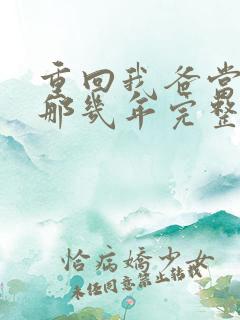 重回我爸当
那几年完整
恰病娇少女
未经同意禁止转载